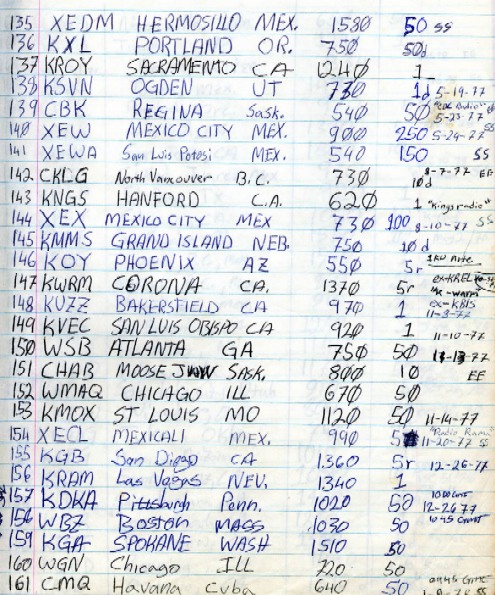 135 XEDM HERMOSILLO MEX. 1580 50 SS
136 KXL PORTLAND OR. 750 50d
137 KROY SACRAMENTO CA 1240 1
138 KSVN OGDEN UT 730 1d 5-19-77
139 CBK REGINA Sask. 540 50 "CBC Radio" 5-23-77
140 XEW MEXICO CITY MEX. 900 250 5-24-77 SS
141 XEWA San Luis Potosi MEX. 540 150 SS
142 CKLG North Vancouver B.C. 730 10d 8-7-77 EE
143 KNGS HANFORD C.A. 620 1 "Kings radio"
144 XEX MEXICO CITY MEX 730 100 8-10-77 SS
145 KMMS GRAND ISLAND NEB. 750 10d
146 KOY PHOENIX AZ 550 5r 1KW Nite.
147 KWRM CORONA CA. 1370 5r ex-KREL
148 KUZZ BAKERSFIELD CA 970 1 ex-KBIS 11-3-77
149 KVEC SAN LUIS OBISPO CA 920 1 11-10-77
150 WSB ATLANTA GA 750 50 11-13-77
151 CHAB MOOSE JAW SASK. 800 10 EE
152 WMAQ CHICAGO ILL 670 50
153 KMOX ST LOUIS MO 1120 50 11-14-77
154 XECL MEXICALI MEX. 990 5 "Radio 11-20-77 SS
155 KGB San Diego CA 1360 5r 12-26-77
156 KRAM Las Vegas NEV. 1340 1
157 KDKA Pittsburgh Penn. 1020 50 1000 GMT 12-26-77
158 WBZ Boston MASS 1030 50 1045 GMT
159 KGA SPOKANE WASH 1510 50
160 WGN Chicago ILL 720 50
161 CMQ Havana Cuba 640 50 GMT